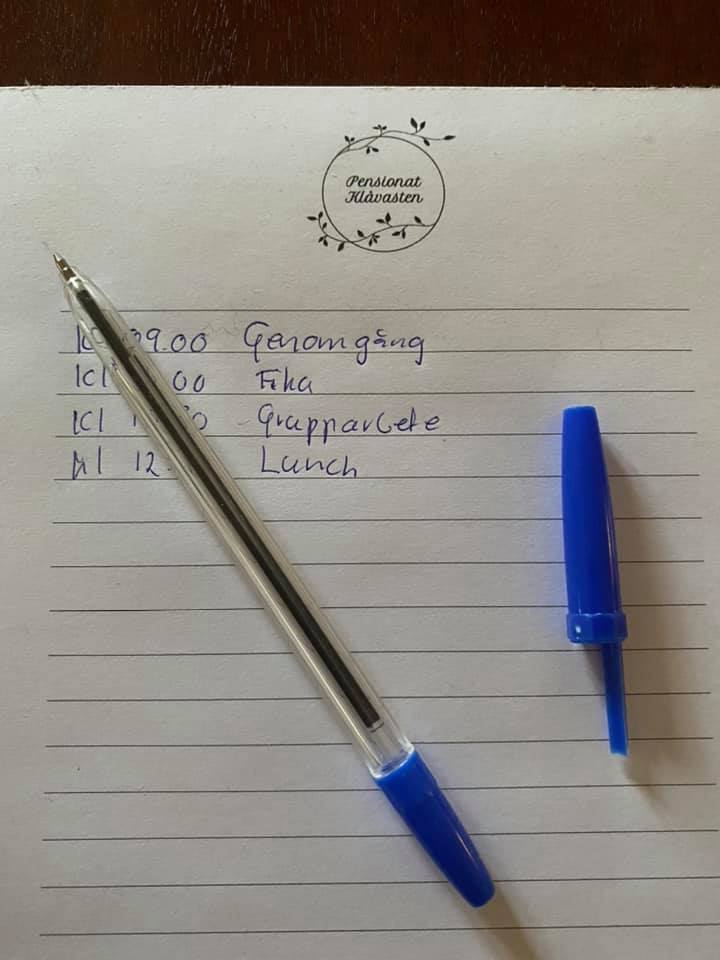 Pensionat
Klåvasten
Kl 09.00 Genomgång
Kl 00 Fika
Kl Grupparbete
Kl 12. Lunch